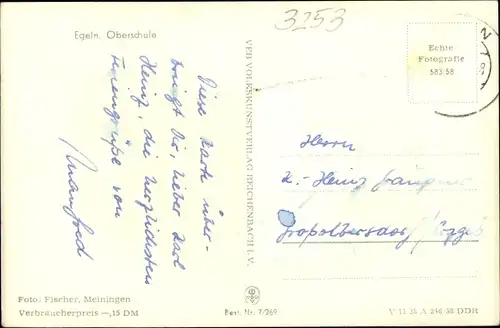 3253
Egeln, Oberschule
Diese Karte über-
bringt Dir, lieber Karl
Heinz, die herzlichsten
Feriengrüße von
Manfred
VEB VOLKSKUNSTVERLAG REICHENBACH I. V.
Echte
Fotografie
583/58
Herrn
K.-Heinz
Foto: Fischer, Meiningen
Verbraucherpreis —,15 DM
Best. Nr. 7/269
V 11 28 A 240/58 DDR